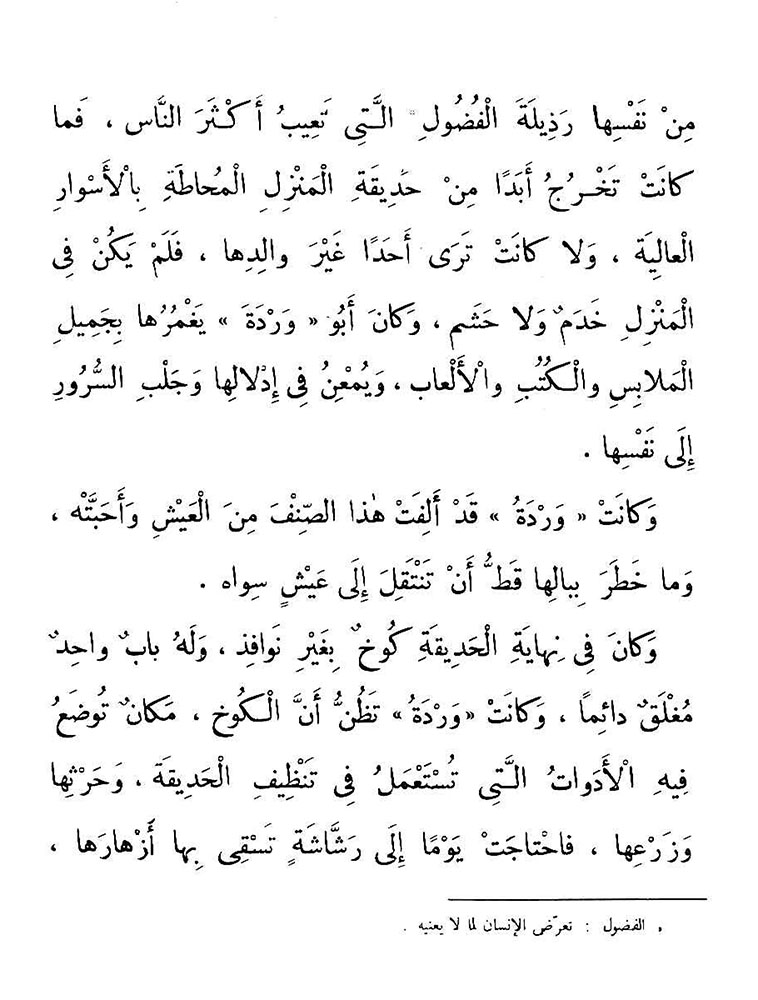 مِنْ نَفْسِها رَذِيلَةَ الْفُضُولِ * الَّتِى تَعِيبُ أَكْثَرَ النَّاس ، فَما
كانَتْ تَخْرُجُ أَبَدًا مِنْ حَدِيقَةِ الْمَنْزِلِ الْمُحاطَةِ بِالْأَسْوارِ
الْعالِيَة ، وَلا كانَتْ تَرَى أَحَدًا غَيْرَ والِدِها ، فَلَمْ يَكُنْ فِى
الْمَنْزِلِ خَدَمٌ وَلا حَشَم ، وَكانَ أَبُو « وَرْدَةَ » يَغْمُرُها بِجَمِيلِ
الْمَلابِسِ والْكُتُبِ والْأَلْعاب ، وَيُمْعِنُ فِى إِدْلالِها وَجَلْبِ السُّرُورِ
إِلَى نَفْسِها .
وَكانَتْ « وَرْدَةُ » قَدْ أَلِفَتْ هٰذا الصِّنْفَ مِنَ الْعَيْشِ وَأَحَبَّتْه ،
وَما خَطَرَ بِبالِها قَطُّ أَنْ تَنْتَقِلَ إِلَى عَيْشٍ سِواه .
وَكانَ فِى نِهايَةِ الْحَدِيقَةِ كُوخٌ بِغَيْرِ نَوافِذ ، وَلَهُ بابٌ واحِدٌ
مُغْلَقٌ دائِماً ، وَكانَتْ «وَرْدَةُ» تَظُنُّ أَنَّ الْكُوخ ، مَكانٌ تُوضَعُ
فِيهِ الْأَدَواتُ الَّتِى تُسْتَعْمَلُ فِى تَنْظِيفِ الْحَدِيقَة ، وَحَرْثِها
وَزَرْعِها ، فاحْتاجَتْ يَوْمًا إِلَى رَشَّاشَةٍ تَسْقِى بِها أَزْهارَها ،
* الفضول : تعرّض الإنسان لما لا يعنيه .